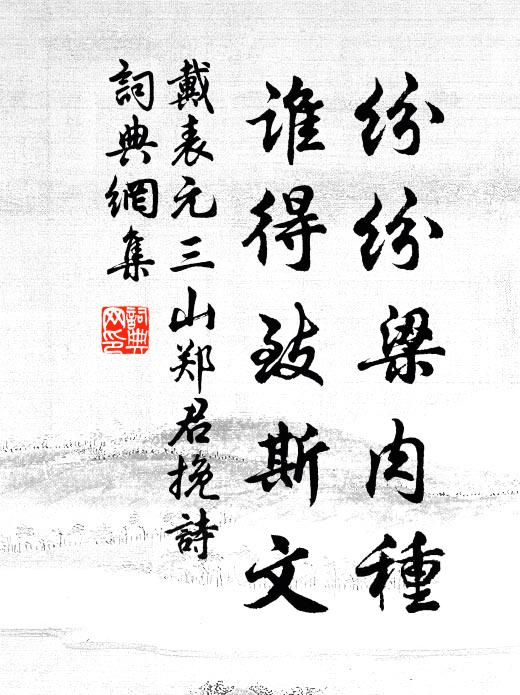 纷纷梁肉種
谁得致斯文
戴表元三山郑君挽詩
詞典網集
詞典网印